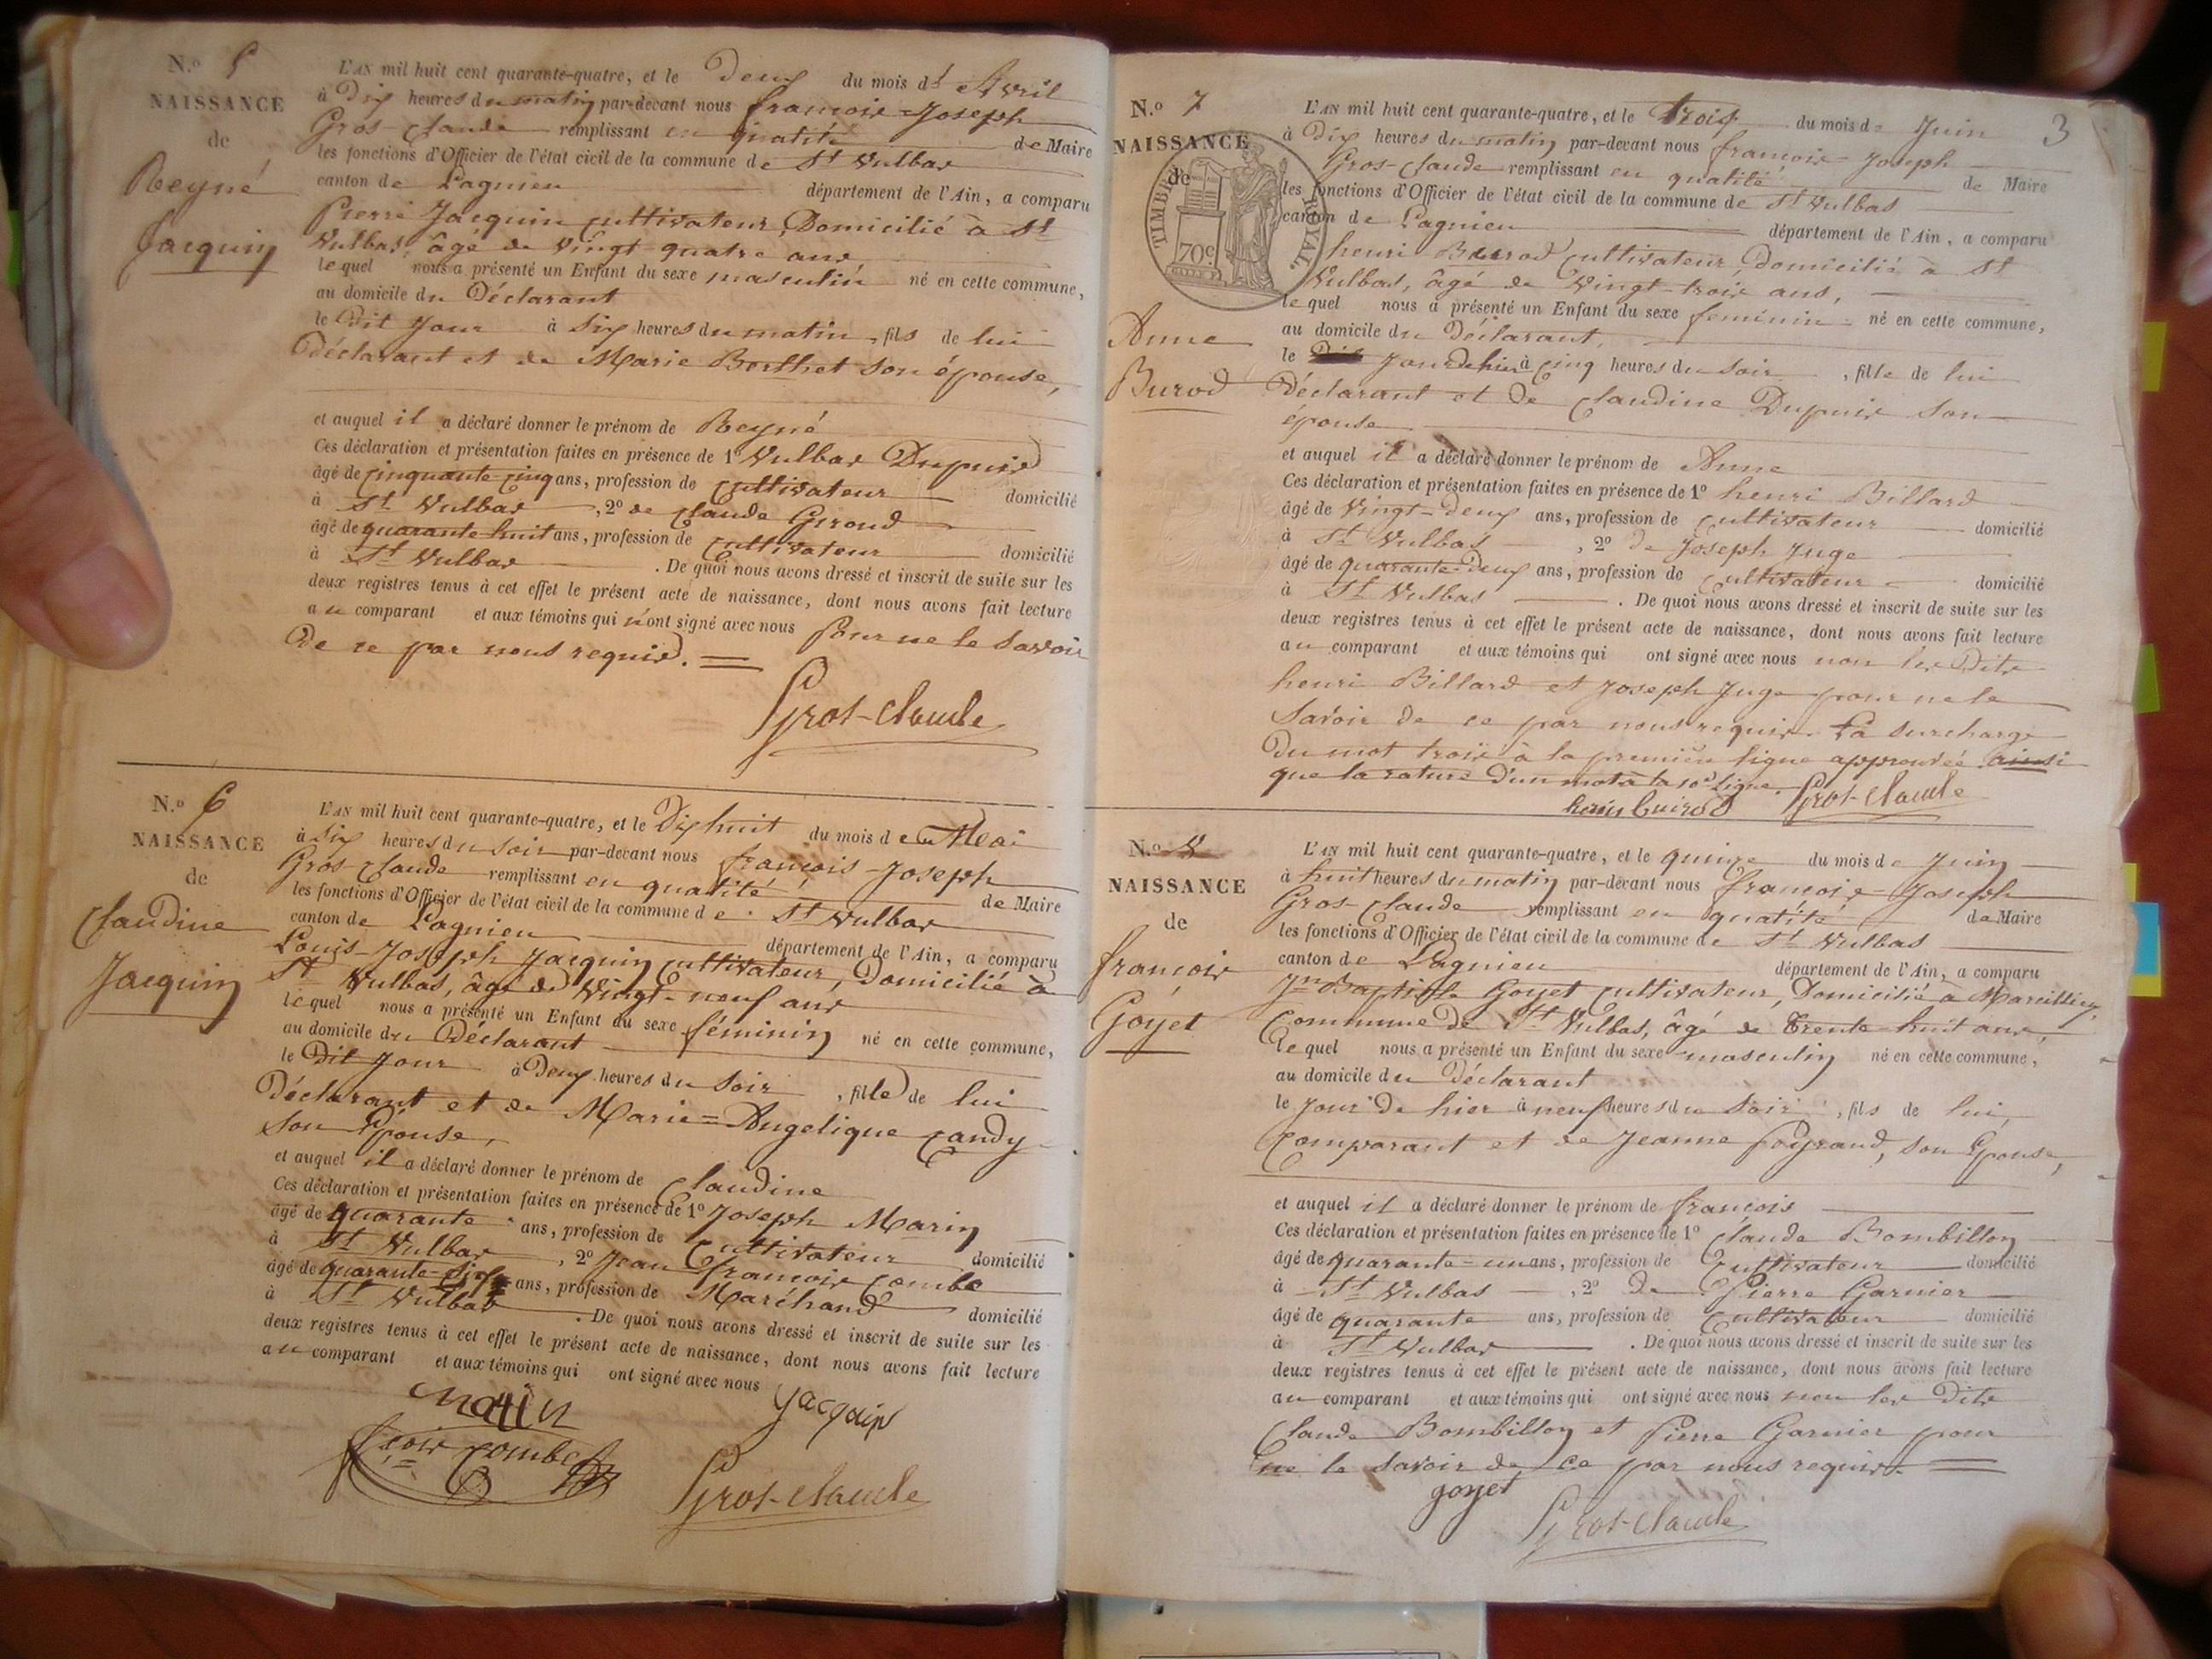 N.º 5
NAISSANCE
de
Reyné
Jacquin
L'AN mil huit cent quarante-quatre, et le Deux du mois d' Avril
à Dix heures du matin par-devant nous françois-Joseph
Gros-Claude remplissant en qualité de Maire
les fonctions d'Officier de l'état civil de la commune de St Vulbas
canton de Lagnieu département de l'Ain, a comparu
Pierre Jacquin cultivateur, Domicilié à St
Vulbas, âgé de Vingt-quatre ans
lequel nous a présenté un Enfant du sexe masculin né en cette commune,
au domicile du Déclarant
le Dit Jour à Six heures du matin, fils de lui
Déclarant et de Marie Berthet son épouse,
et auquel il a déclaré donner le prénom de Reyné
Ces déclaration et présentation faites en présence de 1º Vulbas Dupuis
âgé de cinquante-cinq ans, profession de cultivateur domicilié
à St Vulbas, 2º de Claude Giroud
âgé de quarante-huit ans, profession de cultivateur domicilié
à St Vulbas. De quoi nous avons dressé et inscrit de suite sur les
deux registres tenus à cet effet le présent acte de naissance, dont nous avons fait lecture
au comparant et aux témoins qui n'ont signé avec nous Pour ne le Savoir
De ce par nous requis.
Grot-Claude
N.º 6
NAISSANCE
de
Claudine
Jacquin
L'AN mil huit cent quarante-quatre, et le Dix huit du mois de Mai
à Six heures du Soir par-devant nous françois-Joseph
Gros-Claude remplissant en qualité de Maire
les fonctions d'Officier de l'état civil de la commune de St Vulbas
canton de Lagnieu département de l'Ain, a comparu
Louis-Joseph Jacquin cultivateur, Domicilié à
St Vulbas, âgé de Vingt-neuf ans
lequel nous a présenté un Enfant du sexe féminin né en cette commune,
au domicile du Déclarant
le Dit Jour à Deux heures du Soir, fille de lui
Déclarant et de Marie=Angelique Candy
son Epouse,
et auquel il a déclaré donner le prénom de Claudine
Ces déclaration et présentation faites en présence de 1º Joseph Marin
âgé de quarante ans, profession de Cultivateur domicilié
à St Vulbas, 2º Jean françois Combe
âgé de quarante-Six ans, profession de Maréchand domicilié
à St Vulbas. De quoi nous avons dressé et inscrit de suite sur les
deux registres tenus à cet effet le présent acte de naissance, dont nous avons fait lecture
au comparant et aux témoins qui ont signé avec nous
Jacquin
Combe
Grot-Claude
3
N.º 7
NAISSANCE
de
TIMBRE ROYAL.
70c
Anne
Burod
L'AN mil huit cent quarante-quatre, et le trois du mois de Juin
à Dix heures du matin par-devant nous françois-Joseph
Gros-Claude remplissant en qualité de Maire
les fonctions d'Officier de l'état civil de la commune de St Vulbas
canton de Lagnieu département de l'Ain, a comparu
henri Burod cultivateur, Domicilié à St
Vulbas, âgé de Vingt-trois ans,
lequel nous a présenté un Enfant du sexe féminin né en cette commune,
au domicile du Déclarant,
le Jour de hier à Cinq heures du soir, fille de lui
Déclarant et De Claudine Dupuis Son
épouse
et auquel il a déclaré donner le prénom de Anne
Ces déclaration et présentation faites en présence de 1º henri Billard
âgé de Vingt-Deux ans, profession de Cultivateur domicilié
à St Vulbas, 2º de Joseph Juge
âgé de quarante-Deux ans, profession de Cultivateur domicilié
à St Vulbas. De quoi nous avons dressé et inscrit de suite sur les
deux registres tenus à cet effet le présent acte de naissance, dont nous avons fait lecture
au comparant et aux témoins qui ont signé avec nous non les Dits
henri Billard et Joseph Juge pour ne le
Savoir De ce par nous requis. La surcharge
Du mot trois à la première ligne approuvée ainsi
que la rature D'un mot à la 10e ligne.
Grot-Claude
N.º 8
NAISSANCE
de
françois
Goyet
L'AN mil huit cent quarante-quatre, et le quinze du mois de Juin
à huit heures du matin par-devant nous françois-Joseph
Gros-Claude remplissant en qualité de Maire
les fonctions d'Officier de l'état civil de la commune de St Vulbas
canton de Lagnieu département de l'Ain, a comparu
Jn Baptiste Goyet cultivateur, Domicilié à Marcillieu,
Commune De St Vulbas, âgé de Trente-huit ans,
lequel nous a présenté un Enfant du sexe masculin né en cette commune,
au domicile du Déclarant
le Jour De hier à neuf heures du Soir, fils de lui,
Comparant et de Jeanne Peyraud, son Epouse,
et auquel il a déclaré donner le prénom de françois
Ces déclaration et présentation faites en présence de 1º Claude Bombillon
âgé de quarante=un ans, profession de Cultivateur domicilié
à St Vulbas, 2º De Pierre Garnier
âgé de quarante ans, profession de Cultivateur domicilié
à St Vulbas. De quoi nous avons dressé et inscrit de suite sur les
deux registres tenus à cet effet le présent acte de naissance, dont nous avons fait lecture
au comparant et aux témoins qui ont signé avec nous non les Dits
Claude Bombillon et Pierre Garnier pour
ne le savoir de ce par nous requis.
goyet
Grot-Claude